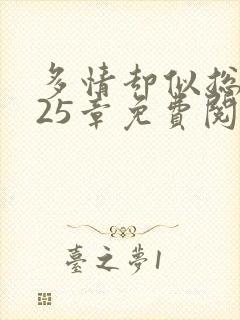 多情却似总
25章免費閱
臺之夢1